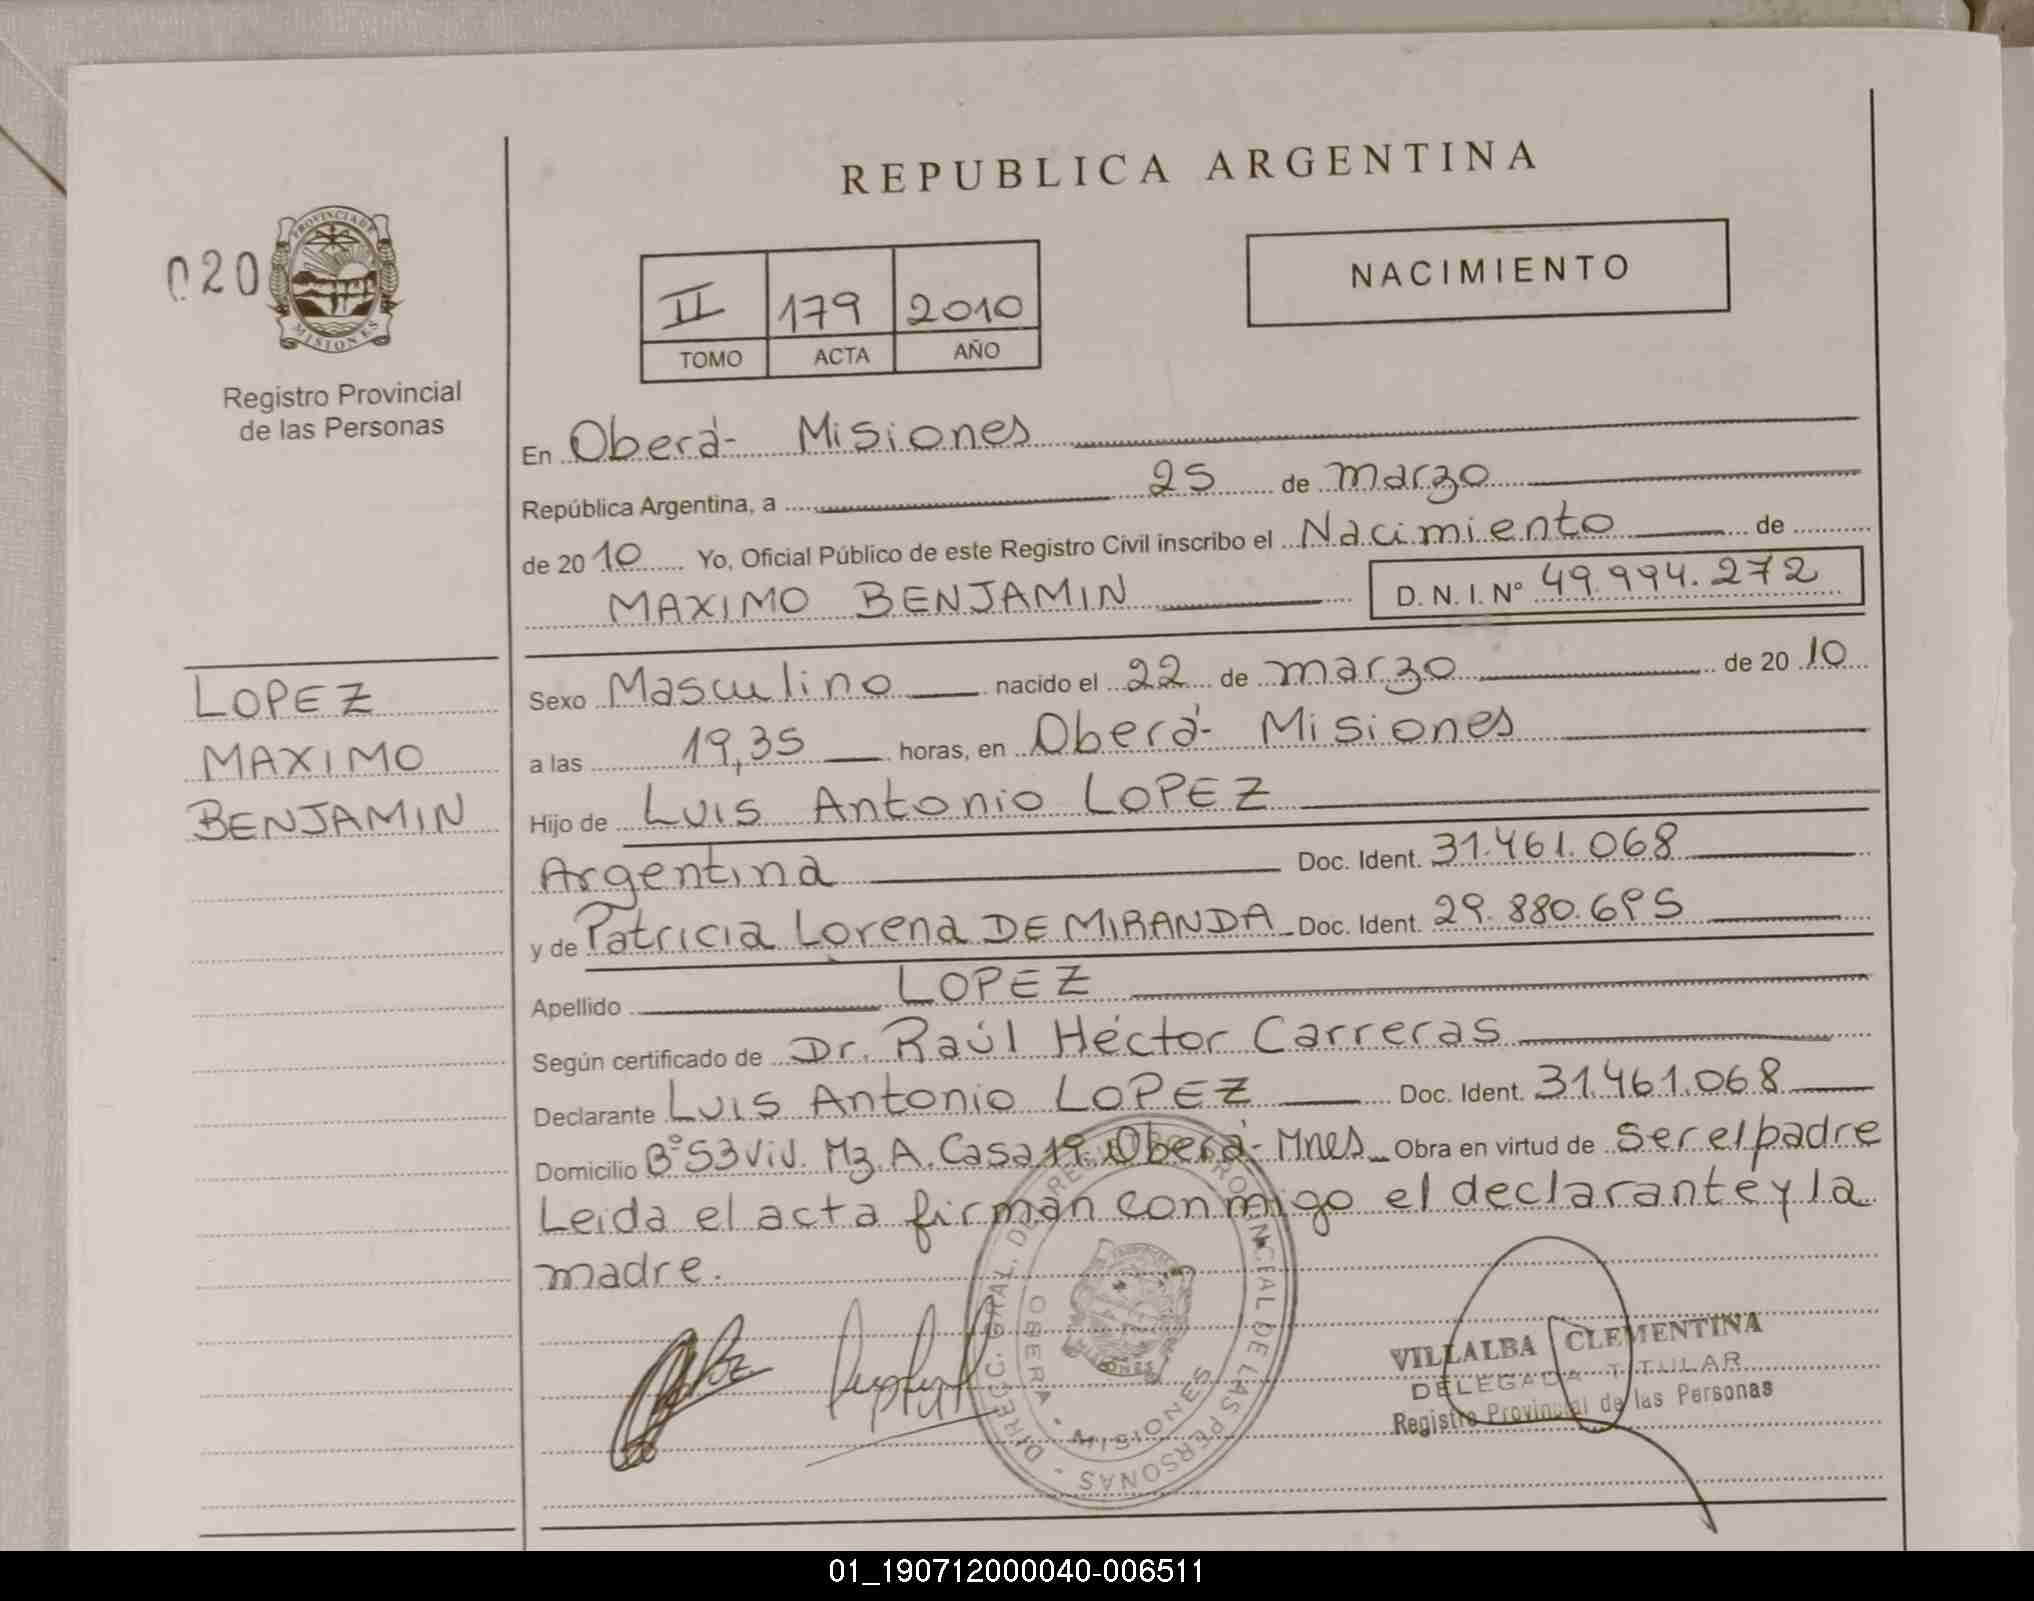 REPUBLICA ARGENTINA
020
PROVINCIA DE
MISIONES
Registro Provincial
de las Personas
NACIMIENTO
II 179 2010
TOMO ACTA AÑO
En Oberá- Misiones
República Argentina, a 25 de marzo
de 2010 Yo, Oficial Público de este Registro Civil inscribo el Nacimiento de
MAXIMO BENJAMIN D.N.I. Nº 49.994.272
LOPEZ
MAXIMO
BENJAMIN
Sexo Masculino nacido el 22 de marzo de 2010
a las 19,35 horas, en Oberá- Misiones
Hijo de Luis Antonio LOPEZ
Argentina Doc. Ident. 31.461.068
y de Patricia Lorena DE MIRANDA Doc. Ident. 29.880.695
Apellido LOPEZ
Según certificado de Dr. Raúl Héctor Carreras
Declarante Luis Antonio LOPEZ Doc. Ident. 31.461.068
Domicilio Bº 53 Viv. Mz. A. Casa 19. Oberá- Mnes Obra en virtud de ser el padre
Leida el acta firman conmigo el declarante y la
madre.
DIRECC. GRAL. DE REGISTRO PROVINCIAL DE LAS PERSONAS
OBERA - MISIONES
VILLALBA CLEMENTINA
DELEGADA TITULAR
Registro Provincial de las Personas
01_190712000040-006511